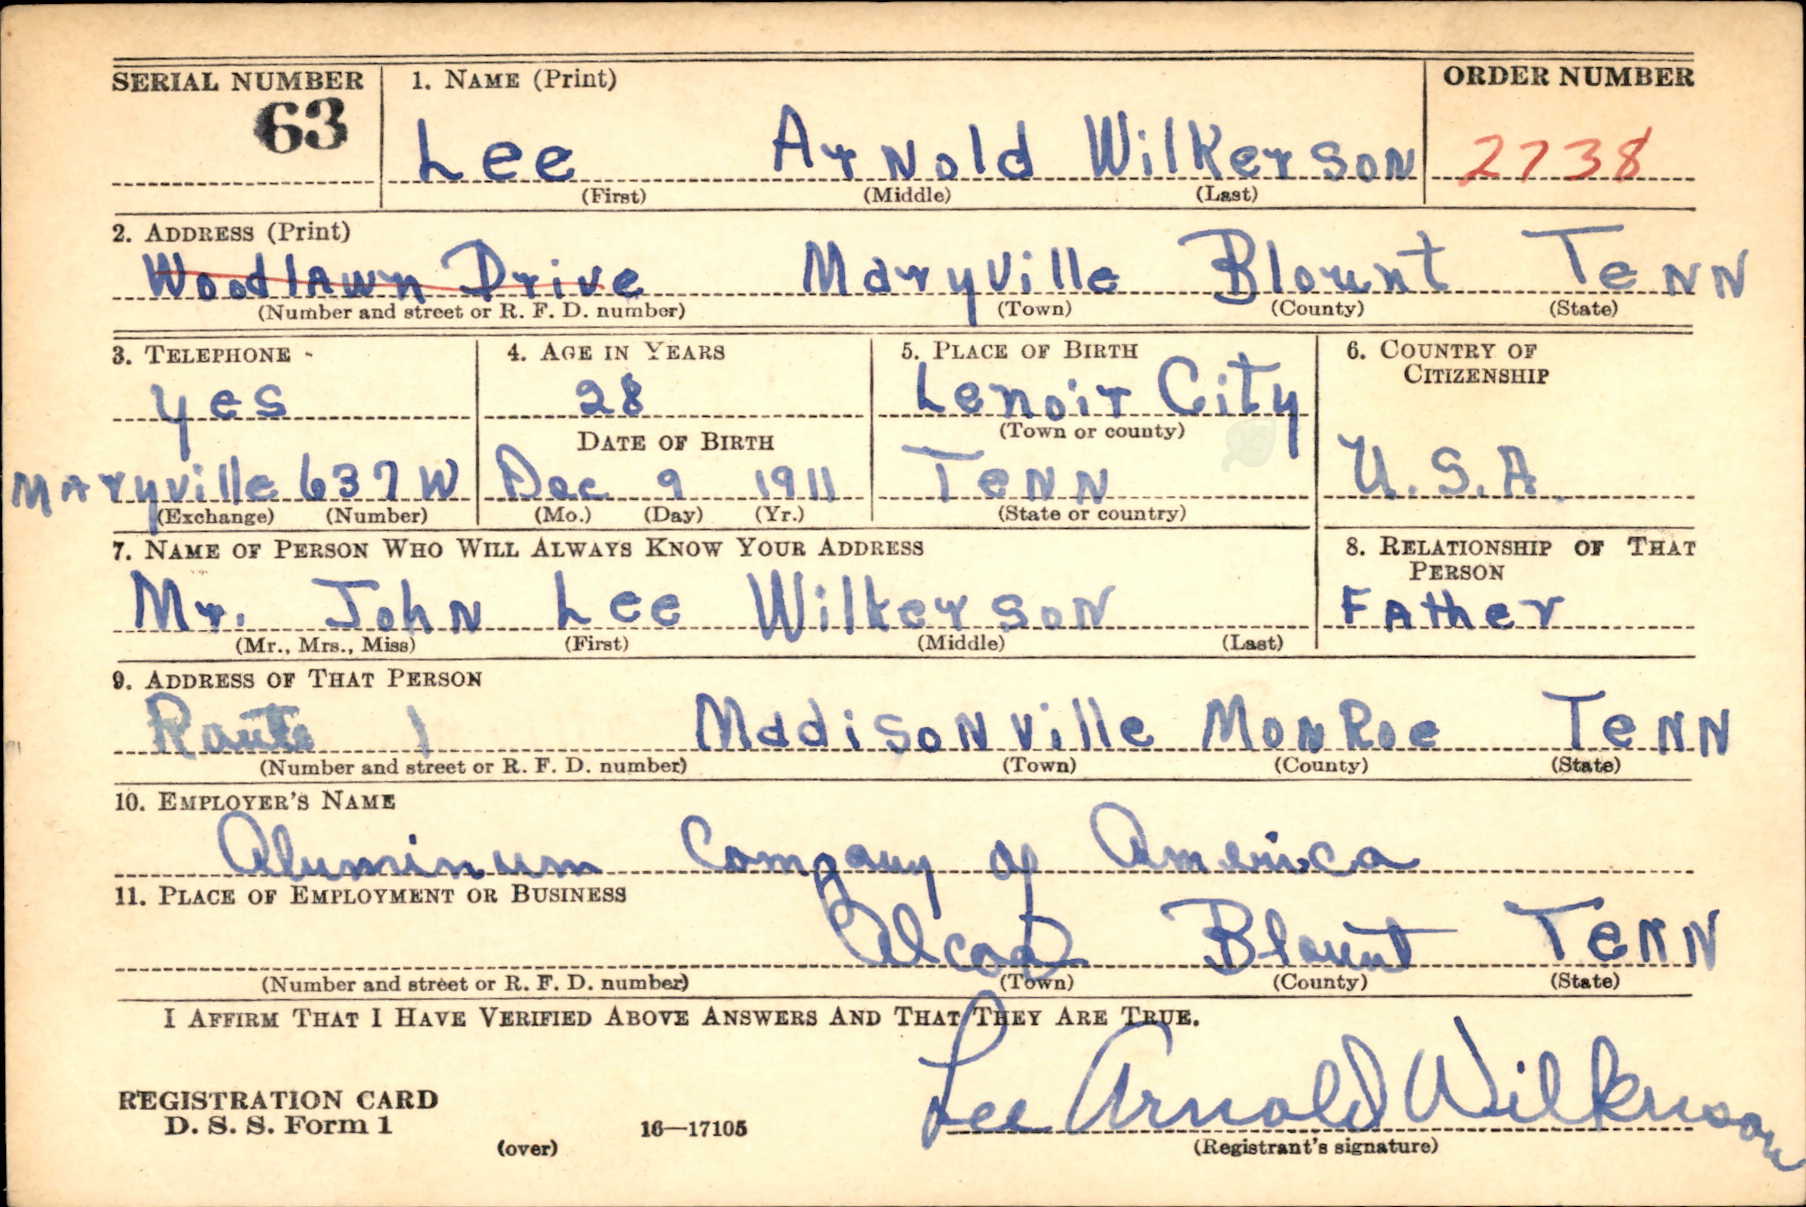 SERIAL NUMBER 1. NAME (Print) ORDER NUMBER
63 Lee Arnold Wilkerson 2738
(First) (Middle) (Last)
2. ADDRESS (Print)
Woodlawn Drive Maryville Blount Tenn
(Number and street or R. F. D. number) (Town) (County) (State)
3. TELEPHONE 4. AGE IN YEARS 5. PLACE OF BIRTH 6. COUNTRY OF
CITIZENSHIP
yes 28 Lenoir City
DATE OF BIRTH (Town or county)
Maryville 637 W Dec 9 1911 Tenn U.S.A.
(Exchange) (Number) (Mo.) (Day) (Yr.) (State or country)
7. NAME OF PERSON WHO WILL ALWAYS KNOW YOUR ADDRESS 8. RELATIONSHIP OF THAT
PERSON
Mr. John Lee Wilkerson Father
(Mr., Mrs., Miss) (First) (Middle) (Last)
9. ADDRESS OF THAT PERSON
Route 1 Madisonville Monroe Tenn
(Number and street or R. F. D. number) (Town) (County) (State)
10. EMPLOYER'S NAME
Aluminum Company of America
11. PLACE OF EMPLOYMENT OR BUSINESS
Alcoa Blount Tenn
(Number and street or R. F. D. number) (Town) (County) (State)
I AFFIRM THAT I HAVE VERIFIED ABOVE ANSWERS AND THAT THEY ARE TRUE.
REGISTRATION CARD Lee Arnold Wilkerson
D. S. S. Form 1 (over) 16—17105 (Registrant's signature)